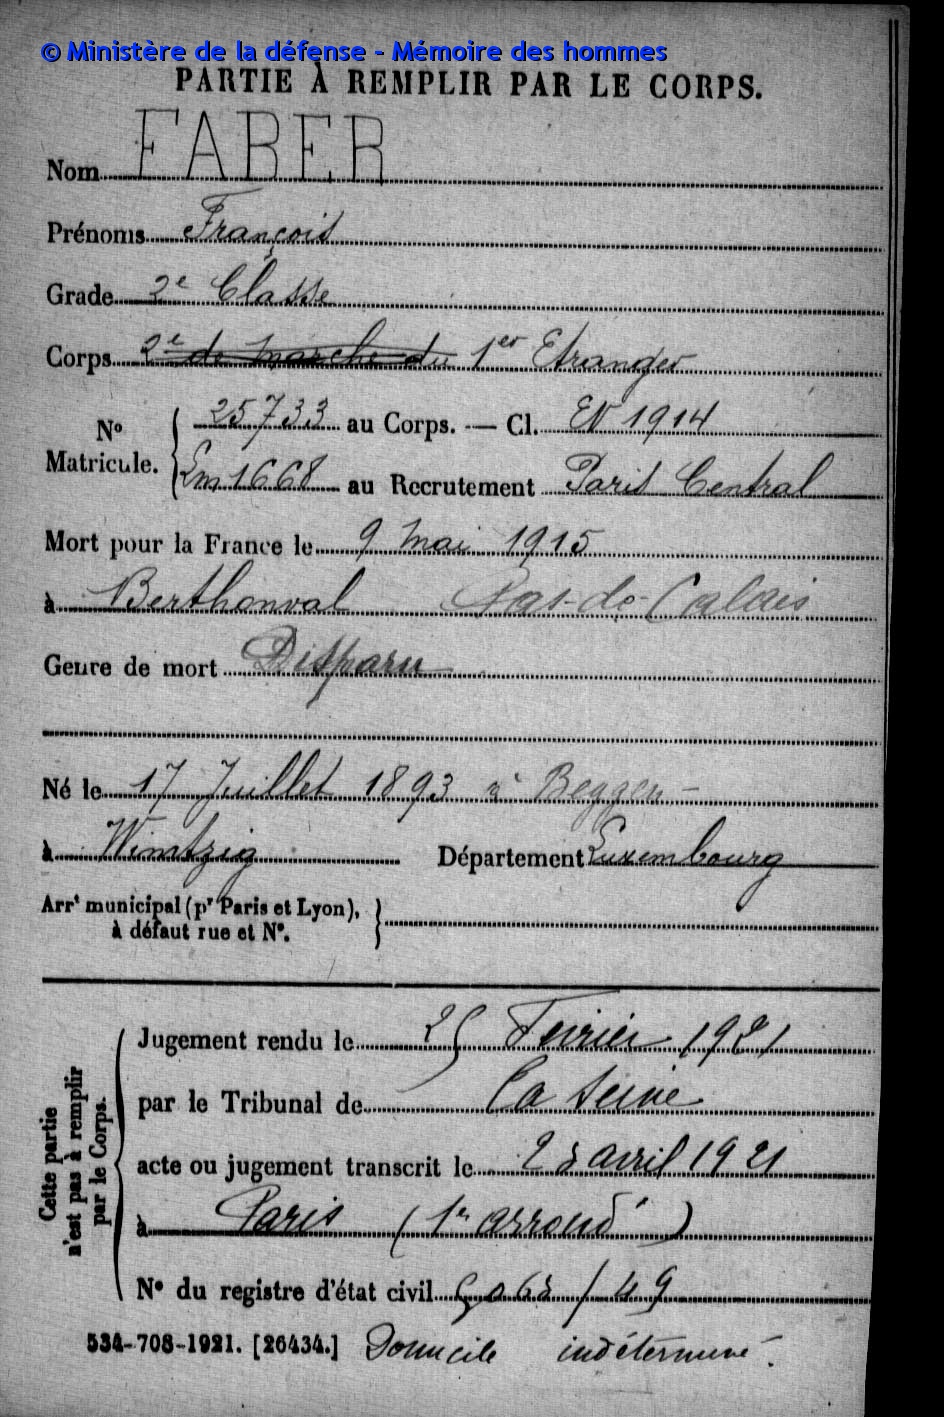 © Ministère de la défense - Mémoire des hommes
PARTIE À REMPLIR PAR LE CORPS.
Nom FABER
Prénoms François
Grade 2e Classe
Corps 2e de marche du 1er Etranger
Nº Matricule. 25733 au Corps. — Cl. EV 1914
Em 1668 au Recrutement Paris Central
Mort pour la France le 9 Mai 1915
à Berthonval Pas-de-Calais
Genre de mort Disparu
Né le 17 Juillet 1893 à Beggen -
à Wimtzig Département Luxembourg
Arrt municipal (pr Paris et Lyon),
à défaut rue et Nº.
Cette partie n'est pas à remplir par le Corps.
Jugement rendu le 25 Février 1921
par le Tribunal de La Seine
acte ou jugement transcrit le avril 1921
à Paris (1er arrondt)
Nº du registre d'état civil / 49
534-708-1921. [26434.] Domicile indéterminé.